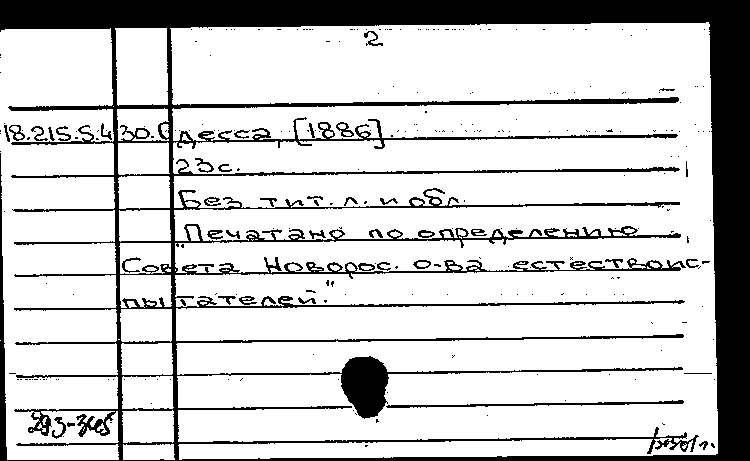 2
18.215.5.430. Одесса, [1886].
23с.
Без тит. л. и обл.
"Печатано по определению
Совета Новорос. о-ва естествоис-
пытателей."
293-345